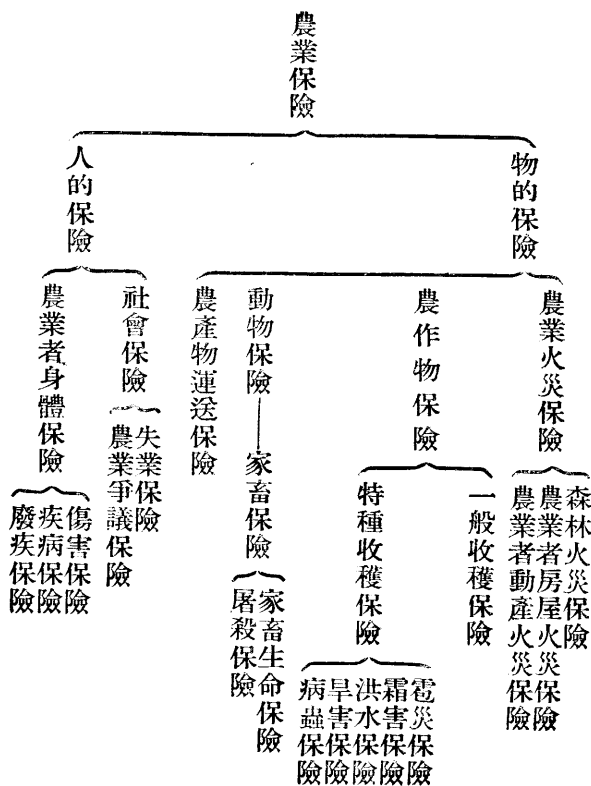 農業保險
物的保險
農業火災保險
森林火災保險
農業者房屋火災保險
農業者動產火災保險
農作物保險
一般收穫保險
特種收穫保險
雹災保險
霜害保險
洪水保險
旱害保險
病蟲保險
動物保險——家畜保險
家畜生命保險
屠殺保險
農產物運送保險
人的保險
社會保險
失業保險
農業爭議保險
農業者身體保險
傷害保險
疾病保險
廢疾保險